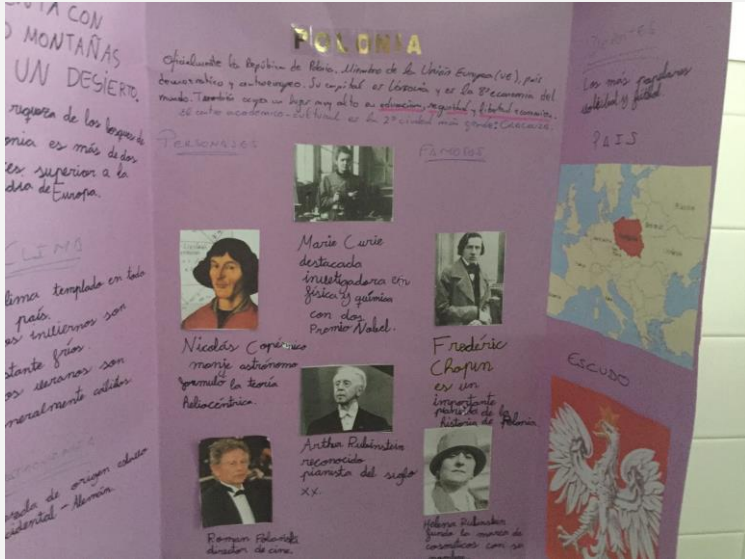 CON
MONTAÑAS
UN DESIERTO.
riqueza de los bosques de
es más de dos
superior a la
de Europa.
CLIMA
templado en todo
país.
inviernos son
fríos.
veranos son
cálidos
de origen eslavo
occidental - Alemán.
POLONIA
Oficialmente la República de Polonia. Miembro de la Unión Europea (UE), país
democrático y Su capital es Varsovia y es la 8ª economía del
mundo. También ocupa un lugar muy alto en educación, seguridad y libertad economica.
El centro academico-cultural es la 2ª ciudad más grande: CRACOVIA.
PERSONAJES
FAMOSOS
Marie Curie
destacada
investigadora en
física y química
con dos
Premio Nobel.
Nicolás Copérnico
monje astrónomo
formuló la teoría
heliocéntrica.
Frédéric
Chopin
es un
importante
pianista de la
historia de Polonia.
Arthur Rubinstein
reconocido
pianista del siglo
XX.
Roman Polanski
director de cine.
Helena Rubinstein
fundó la marca de
cosméticos con su
Los más populares
y fútbol
PAIS
ESCUDO